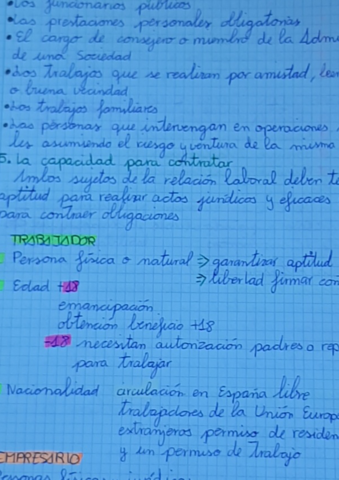 •Los funcionarios públicos
•Las prestaciones personales obligatorias
•El cargo de consejero o miembro de la Adm
de una Sociedad
•Los trabajos que se realizan por amistad,
o buena vecindad
•Los trabajos familiares
•Las personas que intervengan en operaciones
les asumiendo el riesgo y ventura de la misma
5. La capacidad para contratar
Ambos sujetos de la relación laboral deben te
aptitud para realizar actos jurídicos y eficaces
para contraer obligaciones
TRABAJADOR
Persona física o natural ⇒ garantizar aptitud
⇒ libertad firmar con
Edad +18
emancipación
obtención beneficio +18
-18 necesitan autorización padres o rep
para trabajar
Nacionalidad circulación en España libre
trabajadores de la Unión Europ
extranjeros permiso de residen
y un permiso de trabajo
EMPRESARIO